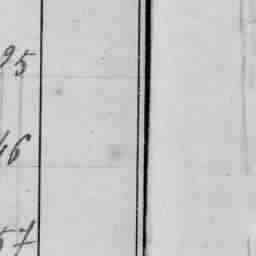 95
46
57